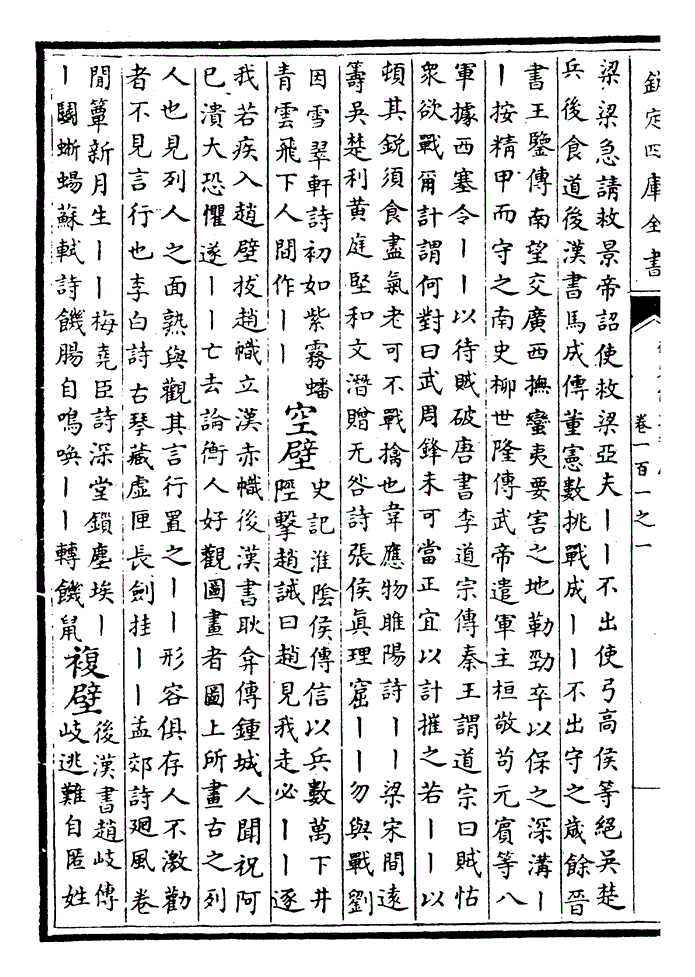 欽定四庫全書
卷一百一之一
梁梁急請救景帝詔使救梁亞夫丨丨不出使弓高侯等絕吳楚
兵後食道後漢書馬成傳董憲數挑戰成丨丨不出守之歲餘晉
書王鑒傳南望交廣西撫蠻夷要害之地勒勁卒以保之深溝丨
丨按精甲而守之南史柳世隆傳武帝遣軍主桓敬苟元賓等八
軍據西塞令丨丨以待賊破唐書李道宗傳秦王謂道宗曰賊怙
衆欲戰爾計謂何對曰武周鋒未可當正宜以計摧之若丨丨以
頓其銳須食盡氣老可不戰擒也韋應物睢陽詩丨丨梁宋間遠
籌吳楚利黄庭堅和文潛贈无咎詩張侯眞理窟丨丨勿與戰劉
因雪翠軒詩初如紫霧蟠
青雲飛下人間作丨丨
空壁
史記淮陰侯傳信以兵數萬下井
陘擊趙誡曰趙見我走必丨丨逐
我若疾入趙壁拔趙幟立漢赤幟後漢書耿弇傳鍾城人聞祝阿
已潰大恐懼遂丨丨亡去論衡人好觀圖畫者圖上所畫古之列
人也見列人之面孰與觀其言行置之丨丨形容俱存人不激勸
者不見言行也李白詩古琴藏虛匣長劍挂丨丨孟郊詩廻風卷
閒簟新月生丨丨梅堯臣詩深堂鎖塵埃丨
丨鬭蜥蜴蘇軾詩饑腸自鳴喚丨丨轉饑鼠
複壁
後漢書趙岐傳
岐逃難自匿姓